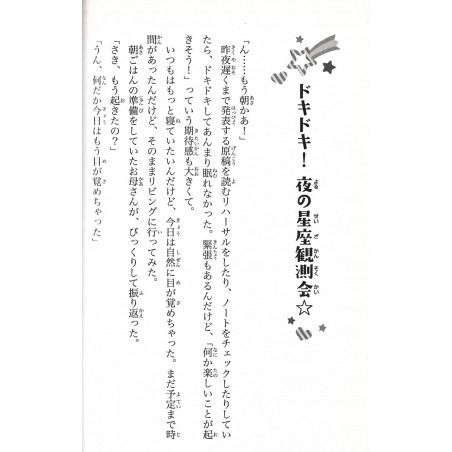 ドキドキ！夜の星座観測会☆
「ん……もう朝かあ！」
昨夜遅くまで発表する原稿を読むリハーサルをしたり、ノートをチェックしたりしてい
たら、ドキドキしてあんまり眠れなかった。緊張もあるんだけど、「何か楽しいことが起
きそう！」っていう期待感も大きくて。
いつもはもっと寝ていたいんだけど、今日は自然に目が覚めちゃった。まだ予定まで時
間があったんだけど、そのままリビングに行ってみた。
朝ごはんの準備をしていたお母さんが、びっくりして振り返った。
「さき、もう起きたの？」
「うん、何だか今日はもう目が覚めちゃった」